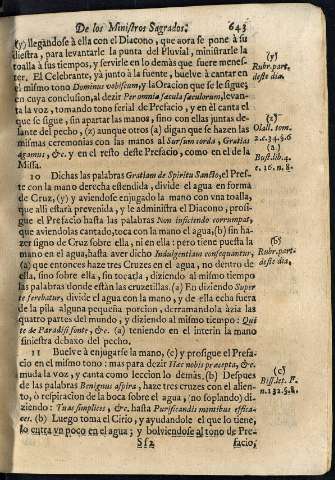 De los Ministros Sagrados. 643
(y) llegandose à ella con el Diacono, que aora se pone à su
diestra, para levantarle la punta del Pluvial, ministrarle la
toalla à sus tiempos, y servirle en lo demàs que fuere menes-
ter. El Celebrante, yà junto à la fuente, buelve à cantar en
el mismo tono Dominus vobiscum, y la Oracion que se le sigue;
en cuya conclusion, al dezir Per omnia sæcula sæculorum, levan-
ta la voz, tomando tono ferial de Prefacio, y en èl canta el
que se sigue, sin apartar las manos, sino con ellas juntas de-
lante del pecho, (z) aunque otros (a) digan que se hazen las
mismas ceremonias con las manos al Sursum corda, Gratias
agamus, &c. y en el resto deste Prefacio, como en el de la
Missa.
10 Dichas las palabras Gratiam de Spiritu Sancto, el Pres-
te con la mano derecha estendida, divide el agua en forma
de Cruz, (y) y aviendose enjugado la mano con vna toalla,
que alli estarà prevenida, y le administra el Diacono, prosi-
gue el Prefacio hasta las palabras Non inficiendo corrumpat,
que aviendolas cantado, toca con la mano el agua, (b) sin ha-
zer signo de Cruz sobre ella, ni en ella: pero tiene puesta la
mano en el agua, hasta aver dicho Indulgentiam consequantur,
(a) que entonces haze tres Cruzes en el agua, no dentro de
ella, sino sobre ella, sin tocarla, diziendo al mismo tiempo
las palabras donde estàn las cruzetillas. (a) En diziendo Super
te ferebatur, divide el agua con la mano, y de ella echa fuera
de la pila alguna pequeña porcion, derramandola àzia las
quatro partes del mundo, y diziendo al mismo tiempo: Qui
te de Paradisi fonte, &c. (a) teniendo en el interin la mano
siniestra debaxo del pecho.
11 Buelve à enjugarse la mano, (c) y prosigue el Prefa-
cio en el mismo tono: mas para dezir Hæc nobis præcepta, &c.
muda la voz, y canta como leccion ò demàs. (b) Despues
de las palabras Benignus aspira, haze tres cruzes con el alien-
to, ò respiracion de la boca sobre el agua, (no soplando) di-
ziendo: Tu as simplices, &c. hasta Purificandis mentibus effica-
ces. (b) Luego toma el Cirio, y ayudandole el que lo tiene,
lo entra vn poco en el agua; y bolviendose al tono de Pre-
Sf 2 facio,
(y)
Rubr. part.
deste dia.
(z)
Olall. tom.
2. c. 34. §. 6
(a)
Bust. lib. 4.
c. 16. n. 8.
(b)
Rubr. part.
deste dia.
(c)
Biss. let. P.
n. 132. §. 8.